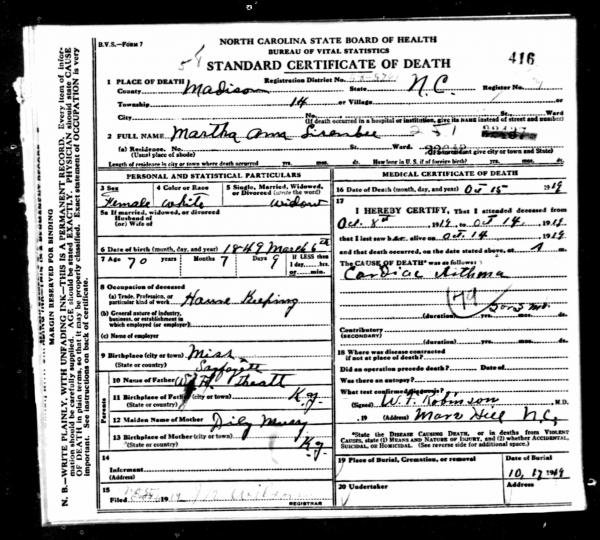 NORTH CAROLINA STATE BOARD OF HEALTH
B.V.S.—FORM 7
BUREAU OF VITAL STATISTICS
STANDARD CERTIFICATE OF DEATH
416
1 PLACE OF DEATH
Registration District No.
Register No.
County Madison State N.C.
Township 14 or Village
City No. St. Ward
(If death occurred in a hospital or institution, give its NAME instead of street and number)
2 FULL NAME Martha Ann
(a) Residence. No. St. Ward.
(Usual place of abode) (If nonresident give city or town and State)
Length of residence in city or town where death occurred yrs. mos. ds. How long in U. S. if of foreign birth? yrs. mos. ds.
PERSONAL AND STATISTICAL PARTICULARS
3 Sex 4 Color or Race 5 Single, Married, Widowed, or Divorced (write the word)
Female White Widow
5a If married, widowed, or divorced
Husband of
(or) Wife of
6 Date of birth (month, day, and year) 1849 March 6th
7 Age 70 years Months 7 Days 9 If LESS than
1 day, hrs.
or min.
8 Occupation of deceased
(a) Trade, Profession, or
particular kind of work House Keeping
(b) General nature of industry,
business, or establishment in
which employed (or employer)
(c) Name of employer
9 Birthplace (city or town) Miss
(State or country)
Parents
10 Name of Father
11 Birthplace of Father (city or town)
(State or country) Ky.
12 Maiden Name of Mother
13 Birthplace of Mother (city or town)
(State or country) Ky.
14
Informant
(Address)
15
Filed 19 REGISTRAR
MEDICAL CERTIFICATE OF DEATH
16 Date of Death (month, day, and year) Oct 15 1919
17
I HEREBY CERTIFY, That I attended deceased from
Oct. 8th 1919, to Oct 14, 1919
that I last saw her alive on Oct. 14, 1919
and that death occurred, on the date stated above, at m.
The CAUSE OF DEATH* was as follows:
Cardiac Asthma
(duration) yrs. mos. ds.
Contributory
(SECONDARY)
(duration) yrs. mos. ds.
18 Where was disease contracted
if not at place of death?
Did an operation precede death? Date of
Was there an autopsy?
What test confirmed diagnosis?
(Signed) W. F. Robinson M.D.
, 19 (Address) Mars Hill N.C.
*State the DISEASE CAUSING DEATH, or in deaths from VIOLENT
CAUSES, state (1) MEANS AND NATURE OF INJURY, and (2) whether ACCIDENTAL,
SUICIDAL, or HOMICIDAL. (See reverse side for additional space.)
19 Place of Burial, Cremation, or removal Date of Burial
10, 17 1919
20 Undertaker Address
MARGIN RESERVED FOR BINDING
N. B.—WRITE PLAINLY, WITH UNFADING INK—THIS IS A PERMANENT RECORD. Every item of information should be carefully supplied. AGE should be stated EXACTLY. PHYSICIAN should state CAUSE OF DEATH in plain terms, so that it may be properly classified. Exact statement of OCCUPATION is very important. See instructions on back of certificate.